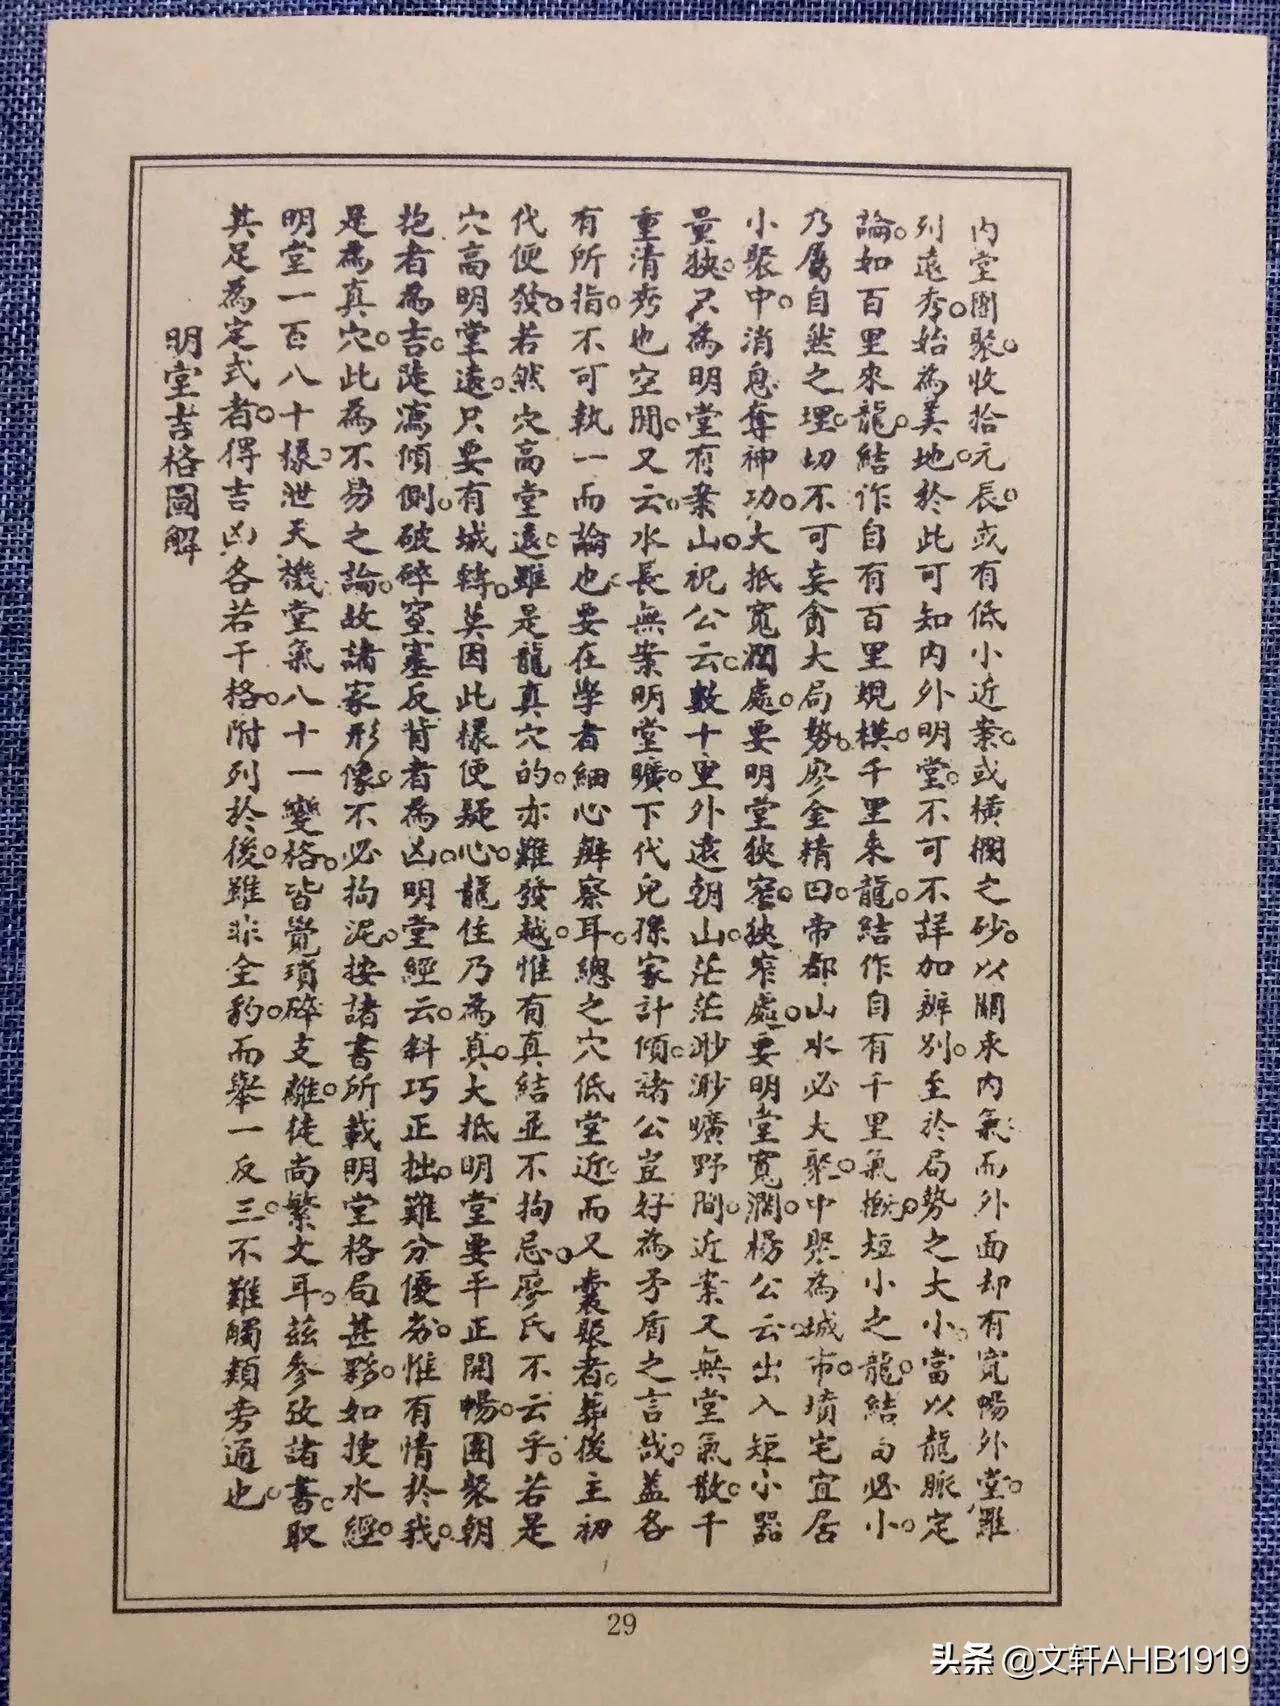 內堂團聚。收拾元辰。或有低小近案。或橫欄之砂。以關束內氣。而外面却有寬暢外堂。羅
列遠秀。始為美地。於此可知內外明堂。不可不詳加辨別。至於局勢之大小。當以龍脈定
論。如百里來龍。結作自有百里規模。千里來龍。結作自有千里氣概。短小之龍。結局必小。
乃屬自然之理。切不可妄貪大局勢。廖金精曰。帝都山水必大聚。中聚為城市。墳宅宜居
小聚中。消息奪神功。大抵寬濶處。要明堂狹窄。狹窄處。要明堂寬濶。楊公云。出入短小器
量狹。只為明堂有案山。祝公云。數十重外遠朝山。茫茫渺渺曠野間。近案又無堂氣散。千
重清秀也空閒。又云。水長無案明堂曠。下代兒孫家計傾。諸公豈好為矛盾之言哉。蓋各
有所指。不可執一而論也。要在學者細心辨察耳。總之穴低堂近。而又囊聚者。葬後主初
代便發。若然穴高堂遠。雖是龍真穴的。亦難發越。惟有真結並不拘忌。廖氏不云乎。若是
穴高明堂遠。只要有城轉。莫因此樣便疑心。龍住乃為真。大抵明堂要平正開暢。團聚朝
抱者為吉。陡瀉傾側。破碎窒塞反背者為凶。明堂經云。斜巧正拙。難分優劣。惟有情於我。
是為真穴。此為不易之論。故諸家形像。不必拘泥。按諸書所載明堂格局甚夥。如捜水經。
明堂一百八十樣。泄天機堂氣八十一變格。皆覺瑣碎支離。徒尚繁文耳。茲參攷諸書。取
其足為定式者。得吉凶各若干格。附列於後。雖非全豹。而舉一反三。不難觸類旁通也。
明堂吉格圖解
29
头条 @文轩AHB1919